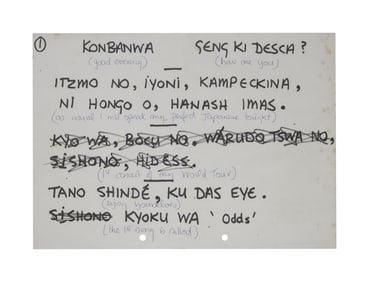 ① KONBANWA GENG KI DESCA?
(good evening) (how are you)
ITZMO NO, IYONI, KAMPECKINA,
NI HONGO O, HANASH IMAS.
(as usual I will speak my perfect Japanese tonight)
KYO WA, BOCU NO, WARUDO TSWA NO,
SISHONO, HIDESS.
(1st concert of my World Tour)
TANO SHINDÉ, KU DAS EYE.
(enjoy yourselves)
SISHONO KYOKU WA 'Odds'
(the 1st song is called)